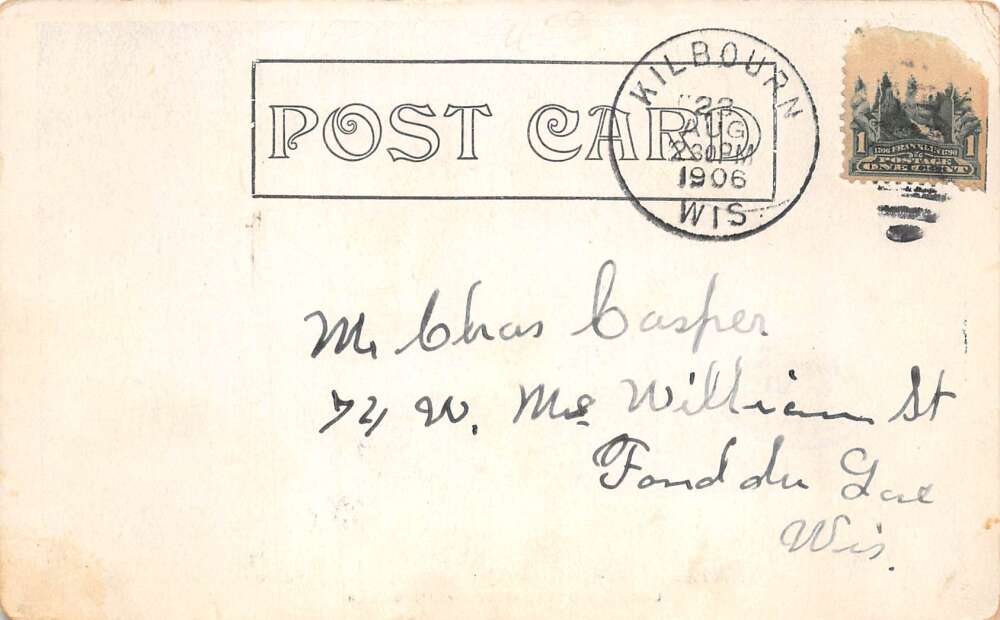 POST CARD
KILBOURN
23
AUG
230PM
1906
WIS
1 1706 FRANKLIN 1790 1
POSTAGE
ONE CENT
Mr Chas Casper
74 W. Mc William St
Fond du Lac
Wis.